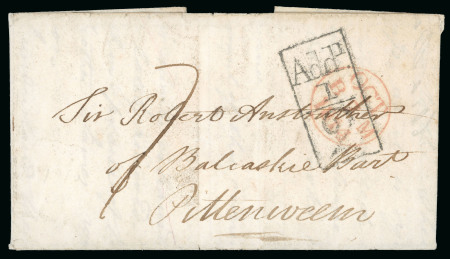 Add¹
½
7
Sir Robert Anstruther
of Balcaskie Bart.
Pittenweem